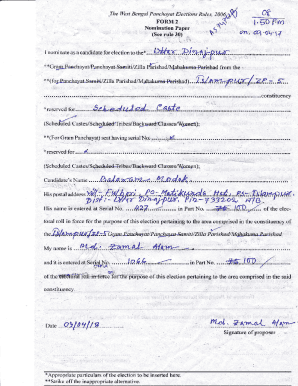 The West Bengal Panchayat Elections Rules, 2006
08
FORM 2
1:50 PM
Nomination Paper
on. 09.04.18
(See rule 30)
I nominate as a candidate for election to the* Uttar Dinajpur
**Gram Panchayat/Panchayat Samiti/Zilla Parishad/Mahakuma Parishad from the
**(for Panchayat Samiti/Zilla Parishad/Mahakuma Parishad) Islampur/ZP-5
constituency
*reserved for Scheduled Caste
(Scheduled Castes/Scheduled Tribes/Backward Classes/Women);
**(For Gram Panchayat) seat having serial No. x
*reserved for x
(Scheduled Castes/Scheduled Tribes/Backward Classes/Women);
Candidate's Name Balaram Modak
His postal address Vill- Fulbari, PO- Matikunda Hat, PS- Islampur,
Dist- Uttar Dinajpur, Pin-733202 W/B.
His name is entered at Serial No. 427 in Part No. 150 of the elec-
toral roll in force for the purpose of this election pertaining to the area comprised in the constituency of
the Islampur/ZP-5 Gram Panchayat/Panchayat Samiti/Zilla Parishad/Mahakuma Parishad
My name is Md. Zamal Alam
and it is entered at Serial No. 1066 in Part No. 150
of the electoral roll in force for the purpose of this election pertaining to the area comprised in the said
constituency.
Date 09/04/18
Md. Zamal Alam
Signature of proposer
*Appropriate particulars of the election to be inserted here.
**Strike off the inappropriate alternative.